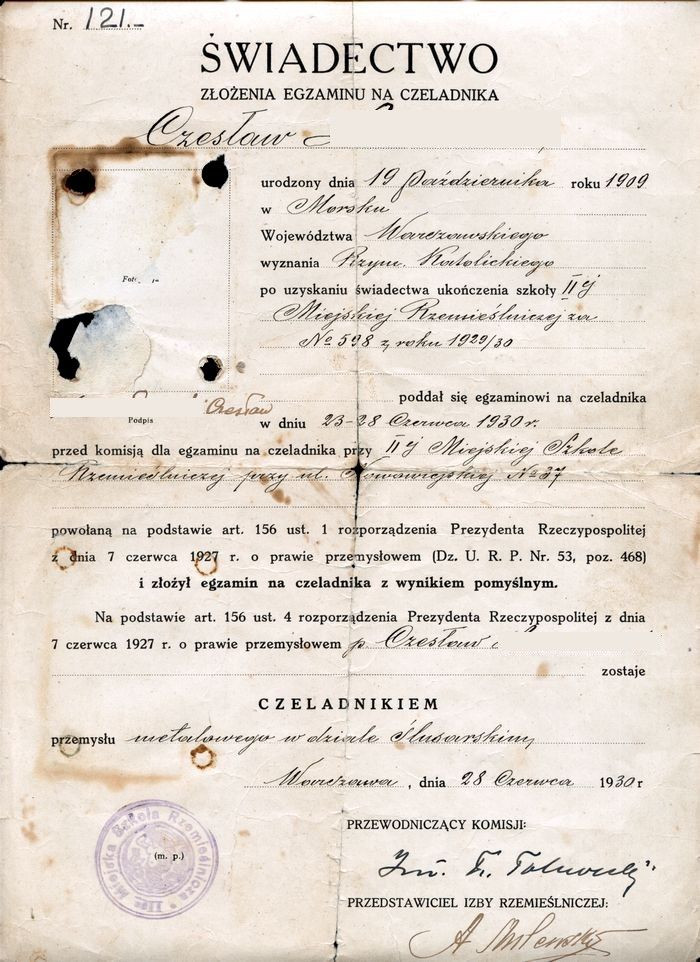 Nr. 121.-
ŚWIADECTWO
ZŁOŻENIA EGZAMINU NA CZELADNIKA
Czesław
urodzony dnia 19 Października roku 1909
w Morsku
Województwa Warszawskiego
wyznania Rzym. Katolickiego
po uzyskaniu świadectwa ukończenia szkoły II ej
Miejskiej Rzemieślniczej za
№ 598 z roku 1929/30
Czesław
Podpis
poddał się egzaminowi na czeladnika
w dniu 23-28 Czerwca 1930 r.
przed komisją dla egzaminu na czeladnika przy II ej Miejskiej Szkole
Rzemieślniczej przy ul. Nowowiejskiej № 37
powołaną na podstawie art. 156 ust. 1 rozporządzenia Prezydenta Rzeczypospolitej
z dnia 7 czerwca 1927 r. o prawie przemysłowem (Dz. U. R. P. Nr. 53, poz. 468)
i złożył egzamin na czeladnika z wynikiem pomyślnym.
Na podstawie art. 156 ust. 4 rozporządzenia Prezydenta Rzeczypospolitej z dnia
7 czerwca 1927 r. o prawie przemysłowem p. Czesław
zostaje
CZELADNIKIEM
przemysłu metalowego w dziale Ślusarskim
Warszawa, dnia 28 Czerwca 1930 r
PRZEWODNICZĄCY KOMISJI:
(m. p.)
IIga Miejska Szkoła Rzemieślnicza
Inż.
PRZEDSTAWICIEL IZBY RZEMIEŚLNICZEJ:
A